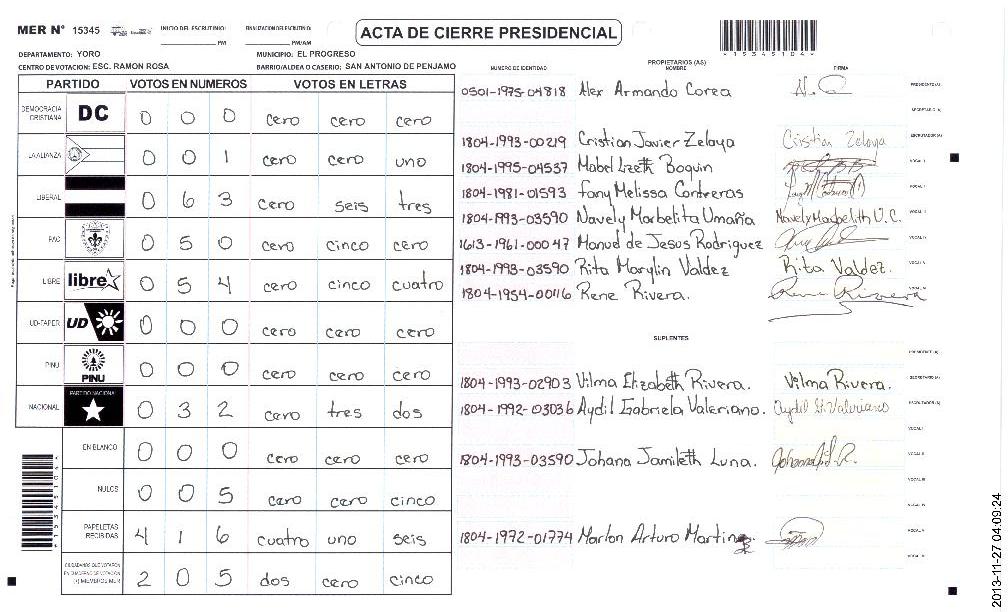 MER N° 15345 INICIO DEL ESCRUTINIO: PM FINALIZACION ESCRUTINIO: PM/AM ACTA DE CIERRE PRESIDENCIAL
DEPARTAMENTO: YORO MUNICIPIO: EL PROGRESO
CENTRO DE VOTACION: ESC. RAMON ROSA BARRIO/ALDEA O CASERIO: SAN ANTONIO DE PENJAMO
PARTIDO VOTOS EN NUMEROS VOTOS EN LETRAS
DEMOCRACIA CRISTIANA DC 0 0 0 cero cero cero
LA ALIANZA 0 0 1 cero cero uno
LIBERAL 0 6 3 cero seis tres
PAC 0 5 0 cero cinco cero
LIBRE libre 0 5 4 cero cinco cuatro
UD-FAPER UD 0 0 0 cero cero cero
PINU PINU 0 0 0 cero cero cero
NACIONAL PARTIDO NACIONAL 0 3 2 cero tres dos
EN BLANCO 0 0 0 cero cero cero
NULOS 0 0 5 cero cero cinco
PAPELETAS RECIBIDAS 4 1 6 cuatro uno seis
CIUDADANOS QUE VOTARON EN CUADERNO DE VOTACION (+) MIEMBROS MER 2 0 5 dos cero cinco
PROPIETARIOS (AS)
NUMERO DE IDENTIDAD NOMBRE FIRMA
0501-1975-04818 Alex Armando Corea PRESIDENTE (A)
SECRETARIO (A)
1804-1993-00219 Cristian Javier Zelaya Cristian Zelaya ESCRUTADOR (A)
1804-1995-04537 Mabel Lizeth Boquin VOCAL I
1804-1981-01593 Fany Melissa Contreras
1804-1993-03590 Navely Marbelita Umaña Navely Marbelith U.C.
1613-1961-00047 Manuel de Jesus Rodriguez
1804-1993-03590 Rita Marylin Valdez Rita Valdez.
1804-1954-00116 Rene Rivera. Rene Rivera
SUPLENTES
PRESIDENTE (A)
1804-1993-02903 Vilma Elizabeth Rivera. Vilma Rivera. SECRETARIO (A)
1804-1992-03036 Aydil Gabriela Valeriano. ESCRUTADOR (A)
1804-1993-03590 Johana Jamileth Luna.
1804-1972-01774 Marlon Arturo Martinez
2013-11-27 04:09:24